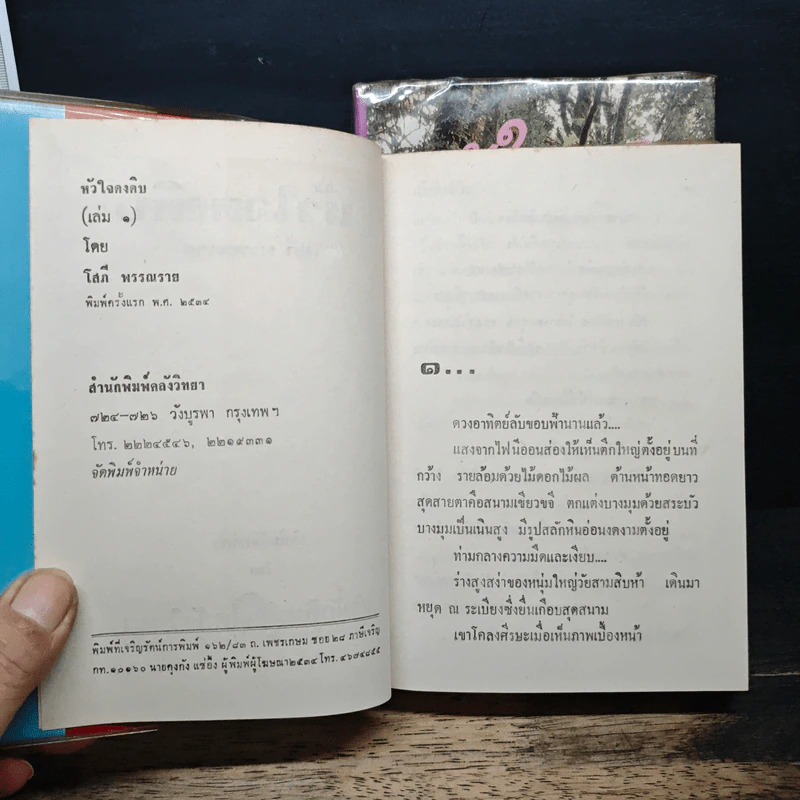 หัวใจดงดิบ
(เล่ม ๑)
โดย
โสภี พรรณราย
พิมพ์ครั้งแรก พ.ศ. ๒๕๓๔
สำนักพิมพ์คลังวิทยา
๗๒๔–๗๒๖ วังบูรพา กรุงเทพฯ
โทร. ๒๒๒๔๕๔๖, ๒๒๑๙๓๓๑
จัดพิมพ์จำหน่าย
พิมพ์ที่เจริญรัตน์การพิมพ์ ๑๖๒/๘๓ ถ. เพชรเกษม ซอย ๒๘ ภาษีเจริญ
กท. ๑๐๑๖๐ นายคุงกัง แซ่อึ้ง ผู้พิมพ์ผู้โฆษณา ๒๕๓๔ โทร. ๔๖๗๔๘๕๕
๑...
ดวงอาทิตย์ลับขอบฟ้านานแล้ว....
แสงจากไฟนีออนส่องให้เห็นตึกใหญ่ตั้งอยู่บนที่
กว้าง รายล้อมด้วยไม้ดอกไม้ผล ด้านหน้าทอดยาว
สุดสายตาคือสนามเขียวขจี ตกแต่งบางมุมด้วยสระบัว
บางมุมเป็นเนินสูง มีรูปสลักหินอ่อนงดงามตั้งอยู่
ท่ามกลางความมืดและเงียบ....
ร่างสูงสง่าของหนุ่มใหญ่วัยสามสิบห้า เดินมา
หยุด ณ ระเบียงซึ่งยื่นเกือบสุดสนาม
เขาโคลงศีรษะเมื่อเห็นภาพเบื้องหน้า